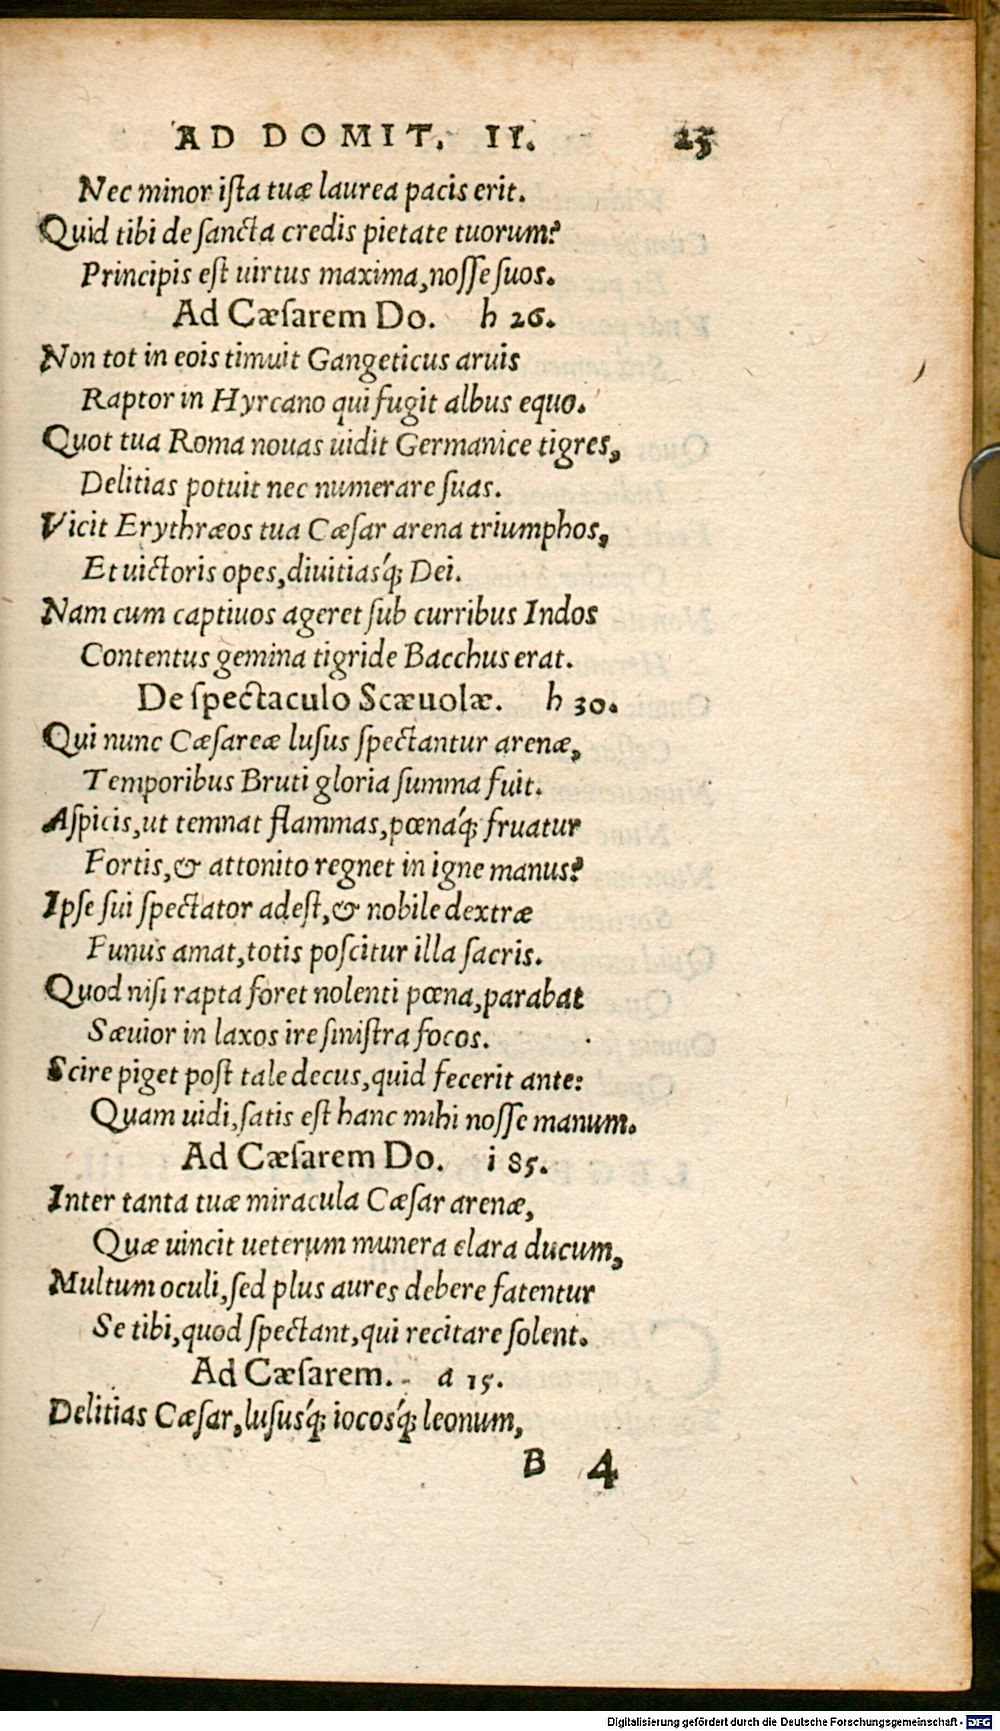 AD DOMIT. II. 25
Nec minor iſta tuæ laurea pacis erit.
Quid tibi de ſancta credis pietate tuorum?
Principis eſt uirtus maxima, noſſe ſuos.
Ad Cæſarem Do. h 26.
Non tot in eois timuit Gangeticus aruis
Raptor in Hyrcano qui fugit albus equo.
Quot tua Roma nouas uidit Germanice tigres,
Delitias potuit nec numerare ſuas.
Vicit Erythræos tua Cæſar arena triumphos,
Et uictoris opes, diuitiasq́; Dei.
Nam cum captiuos ageret ſub curribus Indos
Contentus gemina tigride Bacchus erat.
De ſpectaculo Scæuolæ. h 30.
Qui nunc Cæſareæ luſus ſpectantur arenæ,
Temporibus Bruti gloria ſumma fuit.
Aſpicis, ut temnat flammas, pœnaq́; fruatur
Fortis, & attonito regnet in igne manus?
Ipſe ſui ſpectator adeſt, & nobile dextræ
Funus amat, totis poſcitur illa ſacris.
Quod niſi rapta foret nolenti pœna, parabat
Sæuior in laxos ire ſiniſtra focos.
Scire piget poſt tale decus, quid fecerit ante:
Quam uidi, ſatis eſt hanc mihi noſſe manum.
Ad Cæſarem Do. i 85.
Inter tanta tuæ miracula Cæſar arenæ,
Quæ uincit ueterum munera clara ducum,
Multum oculi, ſed plus aures debere fatentur
Se tibi, quod ſpectant, qui recitare ſolent.
Ad Cæſarem. a 15.
Delitias Cæſar, luſusq́; iocosq́; leonum,
B 4
Digitalisierung gefördert durch die Deutsche Forschungsgemeinschaft - DFG